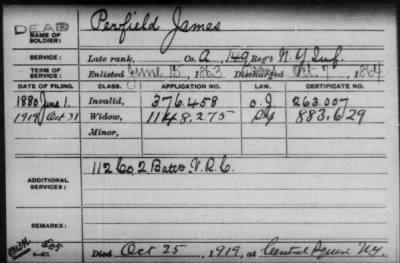 DEAD
NAME OF SOLDIER: Penfield James
SERVICE: Late rank, Co. A, 149 Reg't N.Y. Inf.
TERM OF SERVICE: Enlisted June 15, 1863 Discharged Oct. 7, 1864
DATE OF FILING. CLASS. APPLICATION NO. LAW. CERTIFICATE NO.
1880 June 1. Invalid, 376.458 O.L. 263.007
1919 Oct 31 Widow, 1148.275 883.629
Minor,
ADDITIONAL SERVICES: 112 Co. 2 Batt. V.R.C.
REMARKS:
Died Oct 25, 1919, at Central Square N.Y.